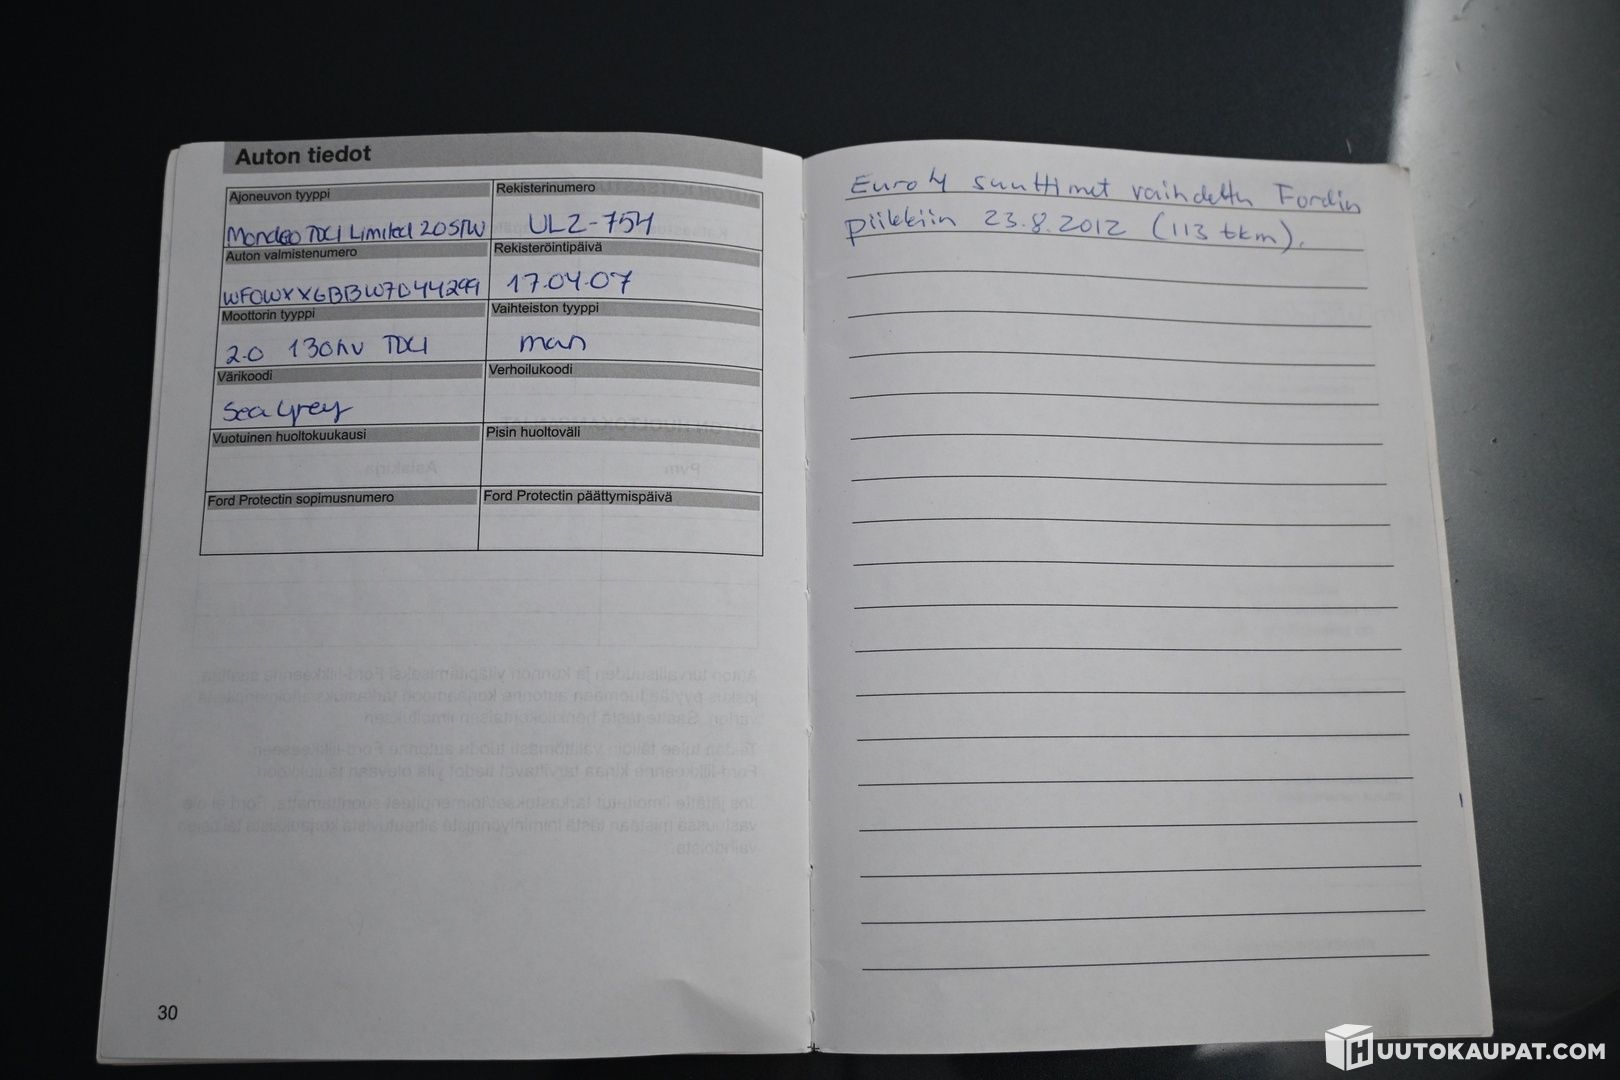 Auton tiedot
Ajoneuvon tyyppi
Mondeo TDCI Limited 2.0 STW
Rekisterinumero
ULZ-754
Auton valmistenumero
WF0WXXGBBW7D44299
Rekisteröintipäivä
17.04.07
Moottorin tyyppi
2.0 130hv TDCI
Vaihteiston tyyppi
man
Värikoodi
Sea Grey
Verhoilukoodi
Vuotuinen huoltokuukausi
Pisin huoltoväli
Ford Protectin sopimusnumero
Ford Protectin päättymispäivä
30
Euro 4 suuttimet vaihdettu Fordin
piikkiin 23.8.2012 (113 tkm).
HUUTOKAUPAT.COM